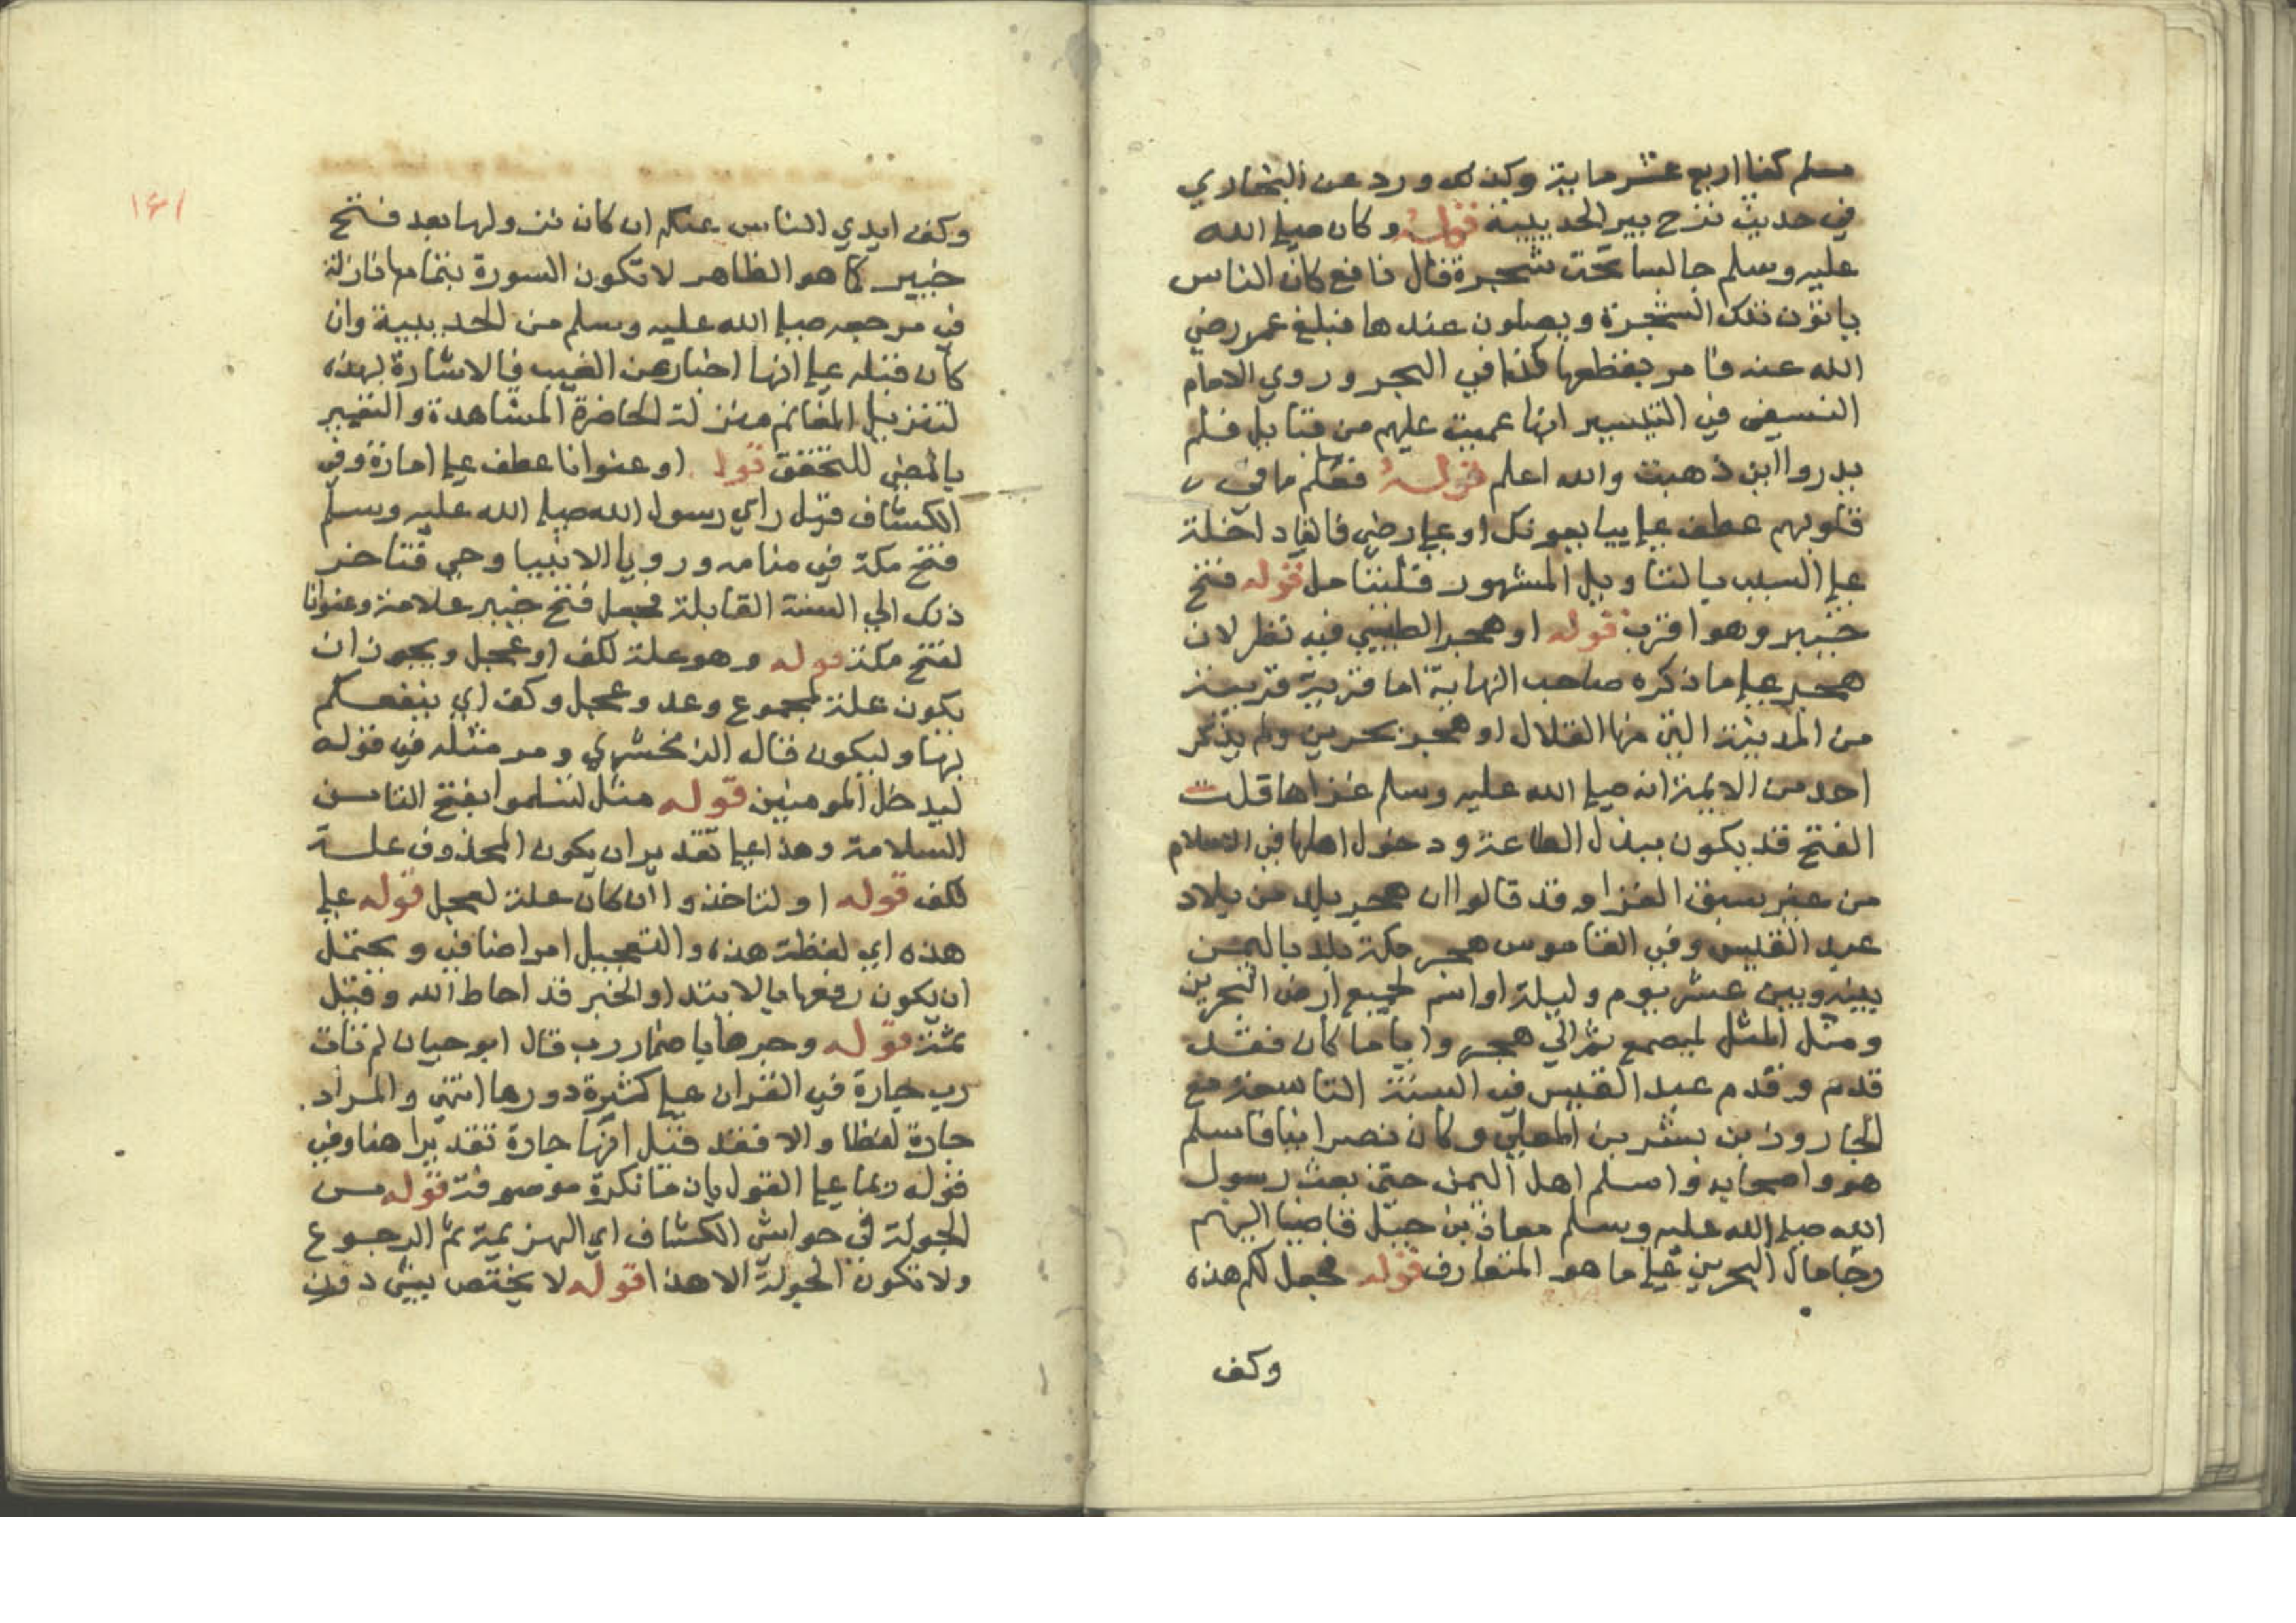 مسلم كنا اربع عشر ماية وكذلك ورد عن البخاري
في حديث نزح بير الحديبية قوله وكان صلى الله
عليه وسلم جالسا تحت شجرة قال نافع كان الناس
ياتون تلك الشجرة ويصلون عندها فبلغ عمر رضي
الله عنه فامر بقطعها كذا في البحر وروي الامام
النسفي في التيسير انها عميت عليهم من قابل فلم
يدروا اين ذهبت والله اعلم قوله فعلم ما في
قلوبهم عطف على يبايعونك او على رضي فالفا داخلة
على السبب بالتاويل المشهور فليتامل قوله فتح
خيبر وهو اقرب قوله او هجر الطيبي فيه نظر لان
هجر على ما ذكره صاحب النهاية اما قرية قريبة
من المدينة التي منها القلال او هجر بحرين ولم يذكر
احد من الايمة انه صلى الله عليه وسلم غزاها قلت
الفتح قد يكون ببذل الطاعة ودخول اهلها في الاسلام
من غير سبق الغزا وقد قالوا ان هجر بلد من بلاد
عبد القيس وفي القاموس هجر محركة بلد باليمن
بينه وبين عشر يوم وليلة او اسم لجميع ارض البحرين
ومثل المثل لمبضع تمر الى هجر واياما كان فقد
قدم وفد عبد القيس في السنة التاسعة مع
الجارود بن بشر بن المعلى وكان نصرانيا فاسلم
هو واصحابه واسلم اهل اليمن حتى بعث رسول
الله صلى الله عليه وسلم معاذ بن جبل قاضيا اليهم
وجا مال البحرين على ما هو المتعارف قوله فجعل لكم هذه
وكف
١٤١
وكف ايدي الناس عنكم ان كان نزولها بعد فتح
خيبر كما هو الظاهر لا تكون السورة بتمامها نازلة
في مرجعه صلى الله عليه وسلم من الحديبية وان
كان قبله على انها اخبار عن الغيب فالاشارة بهذه
لتنزيل المغانم منزلة الحاضرة المشاهدة والتعبير
بالمضي للتحقق قوله او عنوانا عطف على امارة وفي
الكشاف قيل راي رسول الله صلى الله عليه وسلم
فتح مكة في منامه ورويا الانبيا وحي فتاخر
ذلك الي السنة القابلة فجعل فتح خيبر علامة وعنوانا
لفتح مكة قوله وهو علة لكف او عجل ويجوز ان
يكون علة لمجموع وعد وعجل وكف اي ينفعكم
بها وليكون قاله الزمخشري ومر مثله في قوله
ليدخل المومنين قوله مثل لتسلموا بفتح التا من
السلامة وهذا على تقدير ان يكون المحذوف علة
لكف قوله او لتاخذوا ان كان علة لعجل قوله على
هذه اي لفظة هذه والتعجيل امر اضافي ويحتمل
ان يكون رفعها بالابتدا والخبر قد احاط الله وقيل
ثمة قوله وجرها باضمار رب قال ابو حيان لم تات
رب جارة في القران على كثرة دورها انتهى والمراد
جارة لفظا والا فقد قيل انها جارة تقديرا هنا وفي
قوله ربما على القول بان ما نكرة موصوفة قوله من
الجولة في حواشي الكشاف اي الهزيمة ثم الرجوع
ولا تكون الجولة الا هذا قوله لا يختص بشي دون